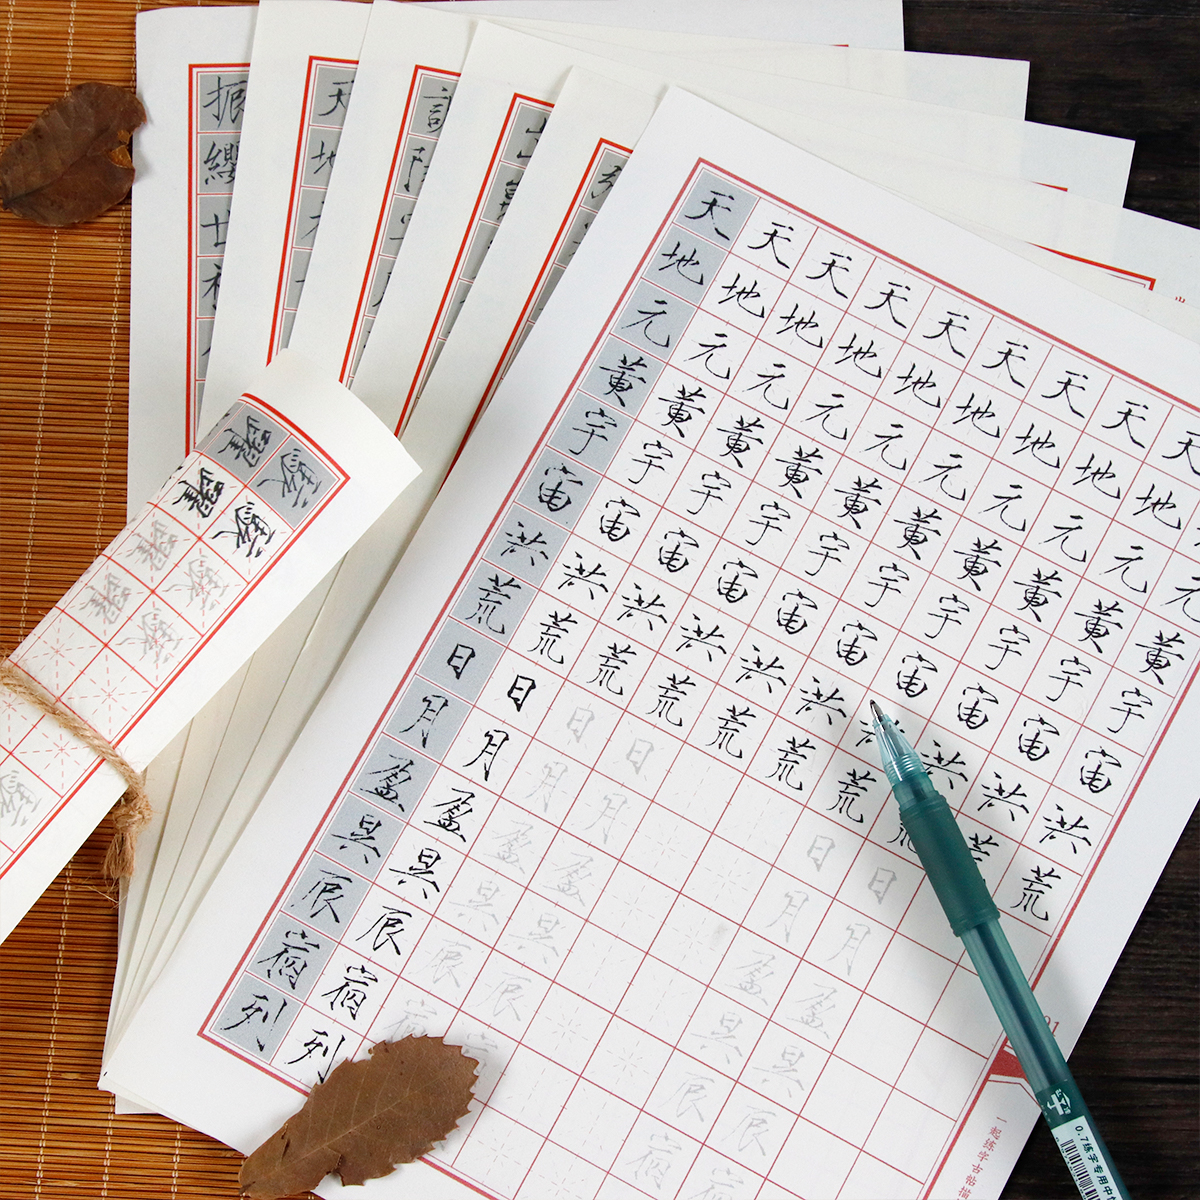 振
纓
世
天
地
天天天天天天天天天
地地地地地地地地地
元元元元元元元元元元
黄黄黄黄黄黄黄黄黄黄
宇宇宇宇宇宇宇宇宇宇
宙宙宙宙宙宙宙宙宙宙
洪洪洪洪洪洪洪洪洪洪
荒荒荒荒荒荒荒荒荒
日日日日日日
月月月月月月
盈盈盈盈盈盈
昃昃昃昃昃昃
辰辰辰辰辰辰
宿宿宿宿
列列
一起练字古帖描
0.7练字专用中